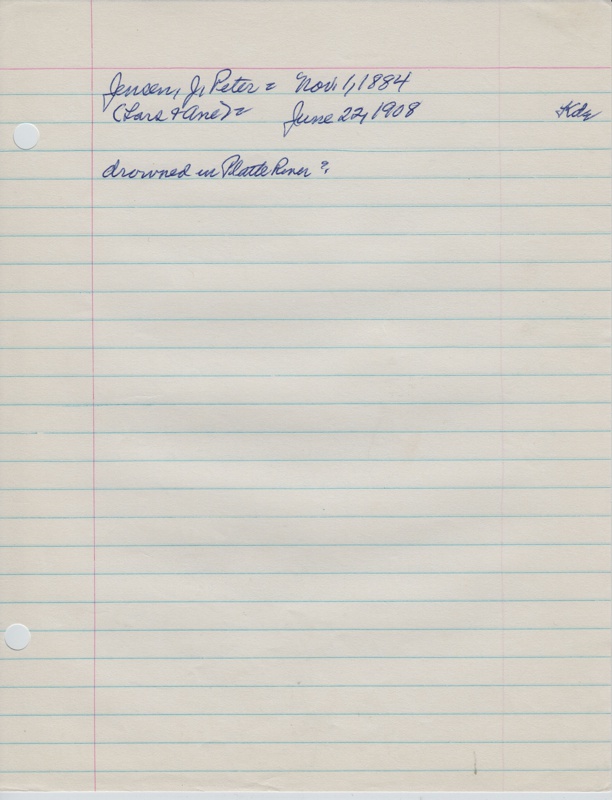 Jensen, J. Peter = Nov. 1, 1884
(Lars & Ane) = June 22, 1908 Kdg
drowned in Platte River ?